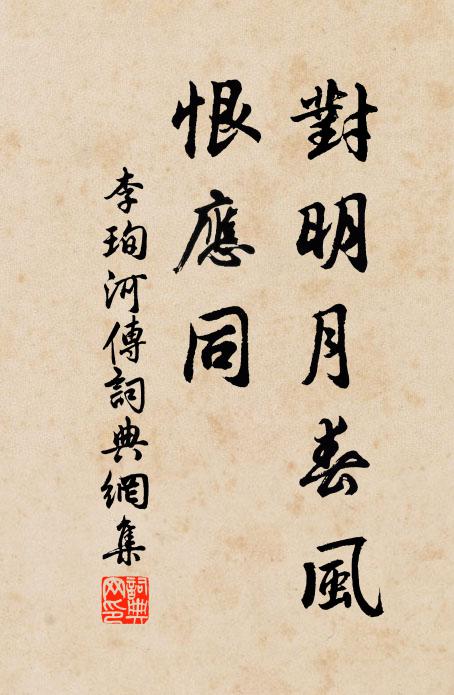 對明月春風
恨應同
李珣河傳詞典網集
詞典
网印